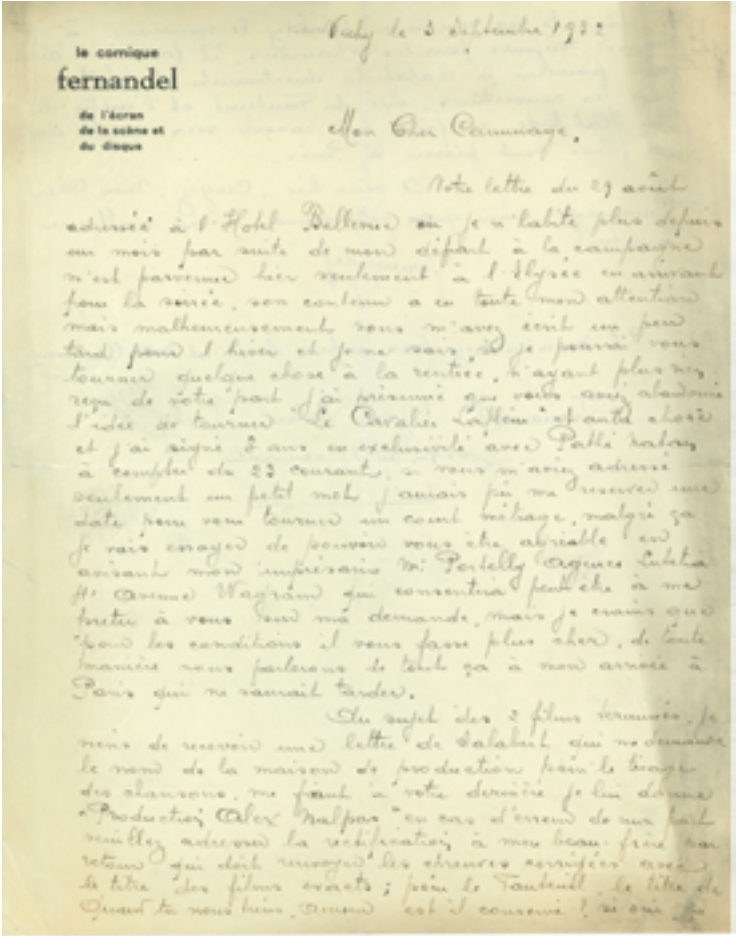 Vichy le 3 Septembre 1932
le comique
fernandel
de l'écran
de la scène et
du disque
Mon Cher Caumnage.
Votre lettre du 29 août
adressée à l'Hotel Bellevue ou je n'habite plus depuis
un mois par suite de mon départ à la campagne
m'est parvenue hier seulement à l'Elysée en arrivant
pour la soirée, son contenu a eu toute mon attention
mais malheureusement vous m'avez écrit un peu
tard pour l'hiver et je ne sais si je pourrai vous
tourner quelque chose à la rentrée, n'ayant plus rien
reçu de votre part j'ai présumé que vous aviez abandonné
l'idée de tourner "Le Cavalier Lafleur" et autre chose
et j'ai signé 2 ans en exclusivité avec Pathé Natan
à compter du 23 courant, si vous m'aviez adressé
seulement un petit mot j'aurais pu me reserver une
date pour vous tourner un court métrage, malgré ça
je vais essayer de pouvoir vous être agréable en
avisant mon imprésario Mr Portelly Agence Lutetia
Avenue Wagram qui consentira peut être à me
preter à vous sur ma demande, mais je crains que
pour les conditions il vous fasse plus cher, de toute
manière nous parlerons de tout ça à mon arrivée à
Paris qui ne saurait tarder.
Au sujet des 2 films tournés, je
viens de recevoir une lettre de Salabert qui me demande
le nom de la maison de production pour le tirage
des chansons, me fiant à votre dernière je lui donne
"Production Alex Nalpas" en cas d'erreur de ma part
veuillez adresser la rectification à mon beau-frère par
retour qui doit renvoyer les épreuves corrigées avec
le titre des films exacts ; pour le Fauteuil, le titre de
Quand tu nous tiens, Amour est il conservé ? si oui